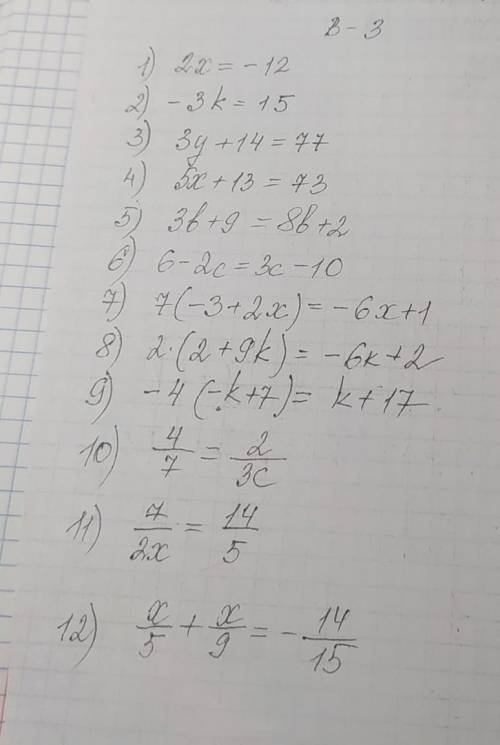 В-3
1) 2x = -12
2) -3k = 15
3) 3y + 14 = 77
4) 5x + 13 = 73
5) 3b + 9 = 8b + 2
6) 6 - 2c = 3c - 10
7) 7(-3 + 2x) = -6x + 1
8) 2·(2 + 9k) = -6k + 2
9) -4(-k + 7) = k + 17
10) 4/7 = 2/3c
11) 7/2x = 14/5
12) x/5 + x/9 = -14/15